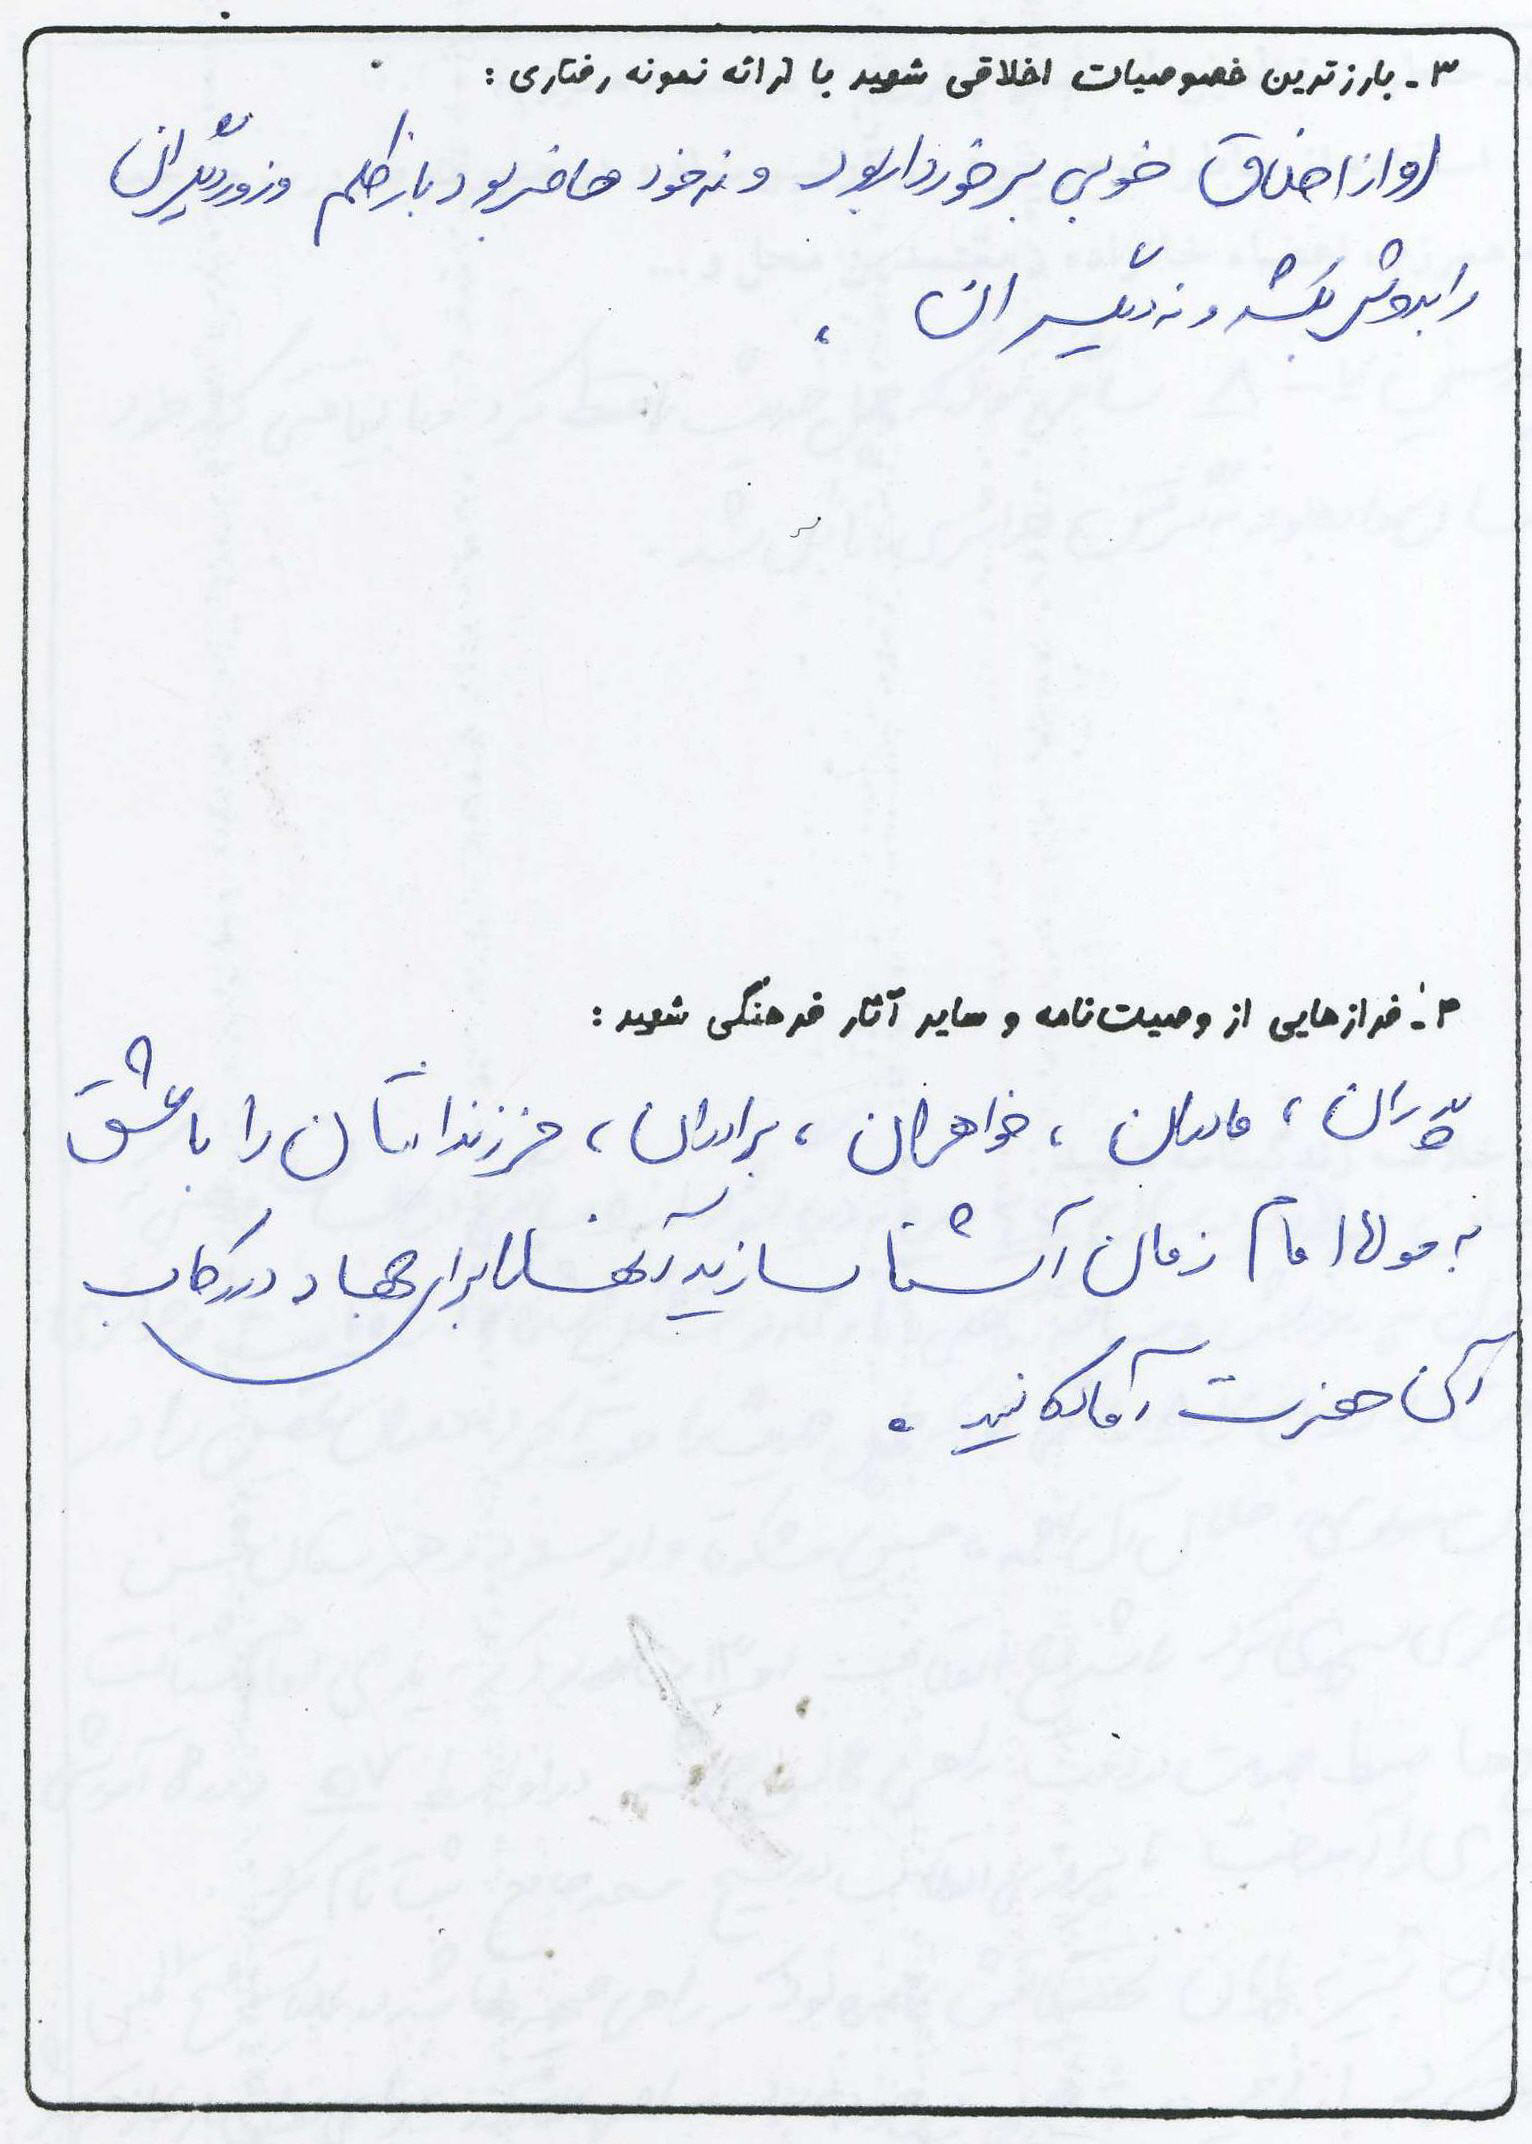 ۳- بارزترین خصوصیات اخلاقی شهید با ارائه نمونه رفتاری :
او از اخلاق خوبی برخوردار بود و نه خود حاضر بود بار ظلم و زور دیگران
را بدوش بکشد و نه دیگران .
۴- فرازهایی از وصیت‌نامه و سایر آثار فرهنگی شهید :
پدران ، مادران ، خواهران ، برادران ، فرزندانتان را با عشق
به مولا امام زمان آشنا سازید آنها را برای جهاد در رکاب
آن حضرت آماده کنید .